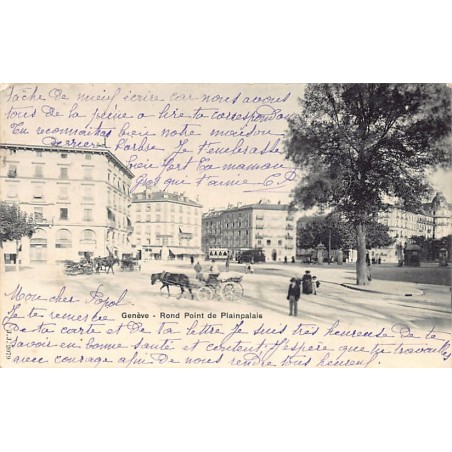 tâche de mieux écrire car nous avons
tous de la peine a lire ta correspondance
Tu reconnaîtras bien notre maison
Derrière l'arbre. Je t'embrasse
bien fort Ta maman
qui t'aime C.P.
Mon cher Popol
Genève - Rond Point de Plainpalais
Je te remercie
De ta carte et de ta lettre Je suis très heureuse De te
savoir en bonne santé et content. J'espère que tu travailles
avec courage afin de nous rendre tous heureux.
J.J. 2079